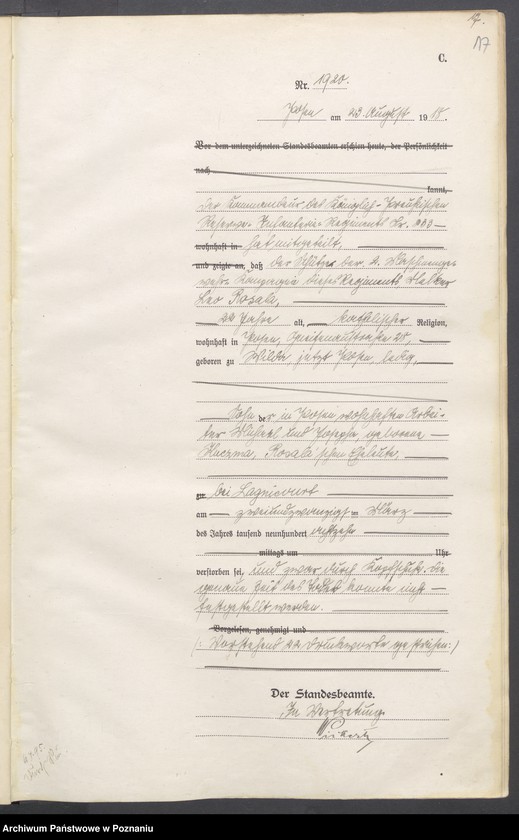 17
C.
Nr. 1920.
Posen am 23 August 1918.
Vor dem unterzeichneten Standesbeamten erschien heute, der Persönlichkeit
nach
kannt,
Der Kommandeur des Königlich-Preußischen
Reserve-Infanterie-Regiments Nr.
wohnhaft in hat mitgeteilt,
und zeigte an, daß der Schütze der 2. Maschinenge-
wehr-Kompagnie dieses Regiments
Leo Rosada,
22 Jahre alt, katholischer Religion,
wohnhaft in Posen, Gneisenaustraße 28,
geboren zu Wilda, jetzt Posen, ledig,
Sohn der in Posen wohnhaften Arbei-
ter Michael und Josepha, geborene
Rosada'schen Eheleute,
zu bei Lagnicourt
am zweiundzwanzigsten März
des Jahres tausend neunhundert achtzehn
mittags um Uhr
verstorben sei, und zwar durch Kopfschuß. Die
genaue Zeit des Todes konnte nicht
festgestellt werden.
Vorgelesen, genehmigt und
(: Vorstehend 22 Druckworte gestrichen :)
Der Standesbeamte.
In Vertretung
Archiwum Państwowe w Poznaniu